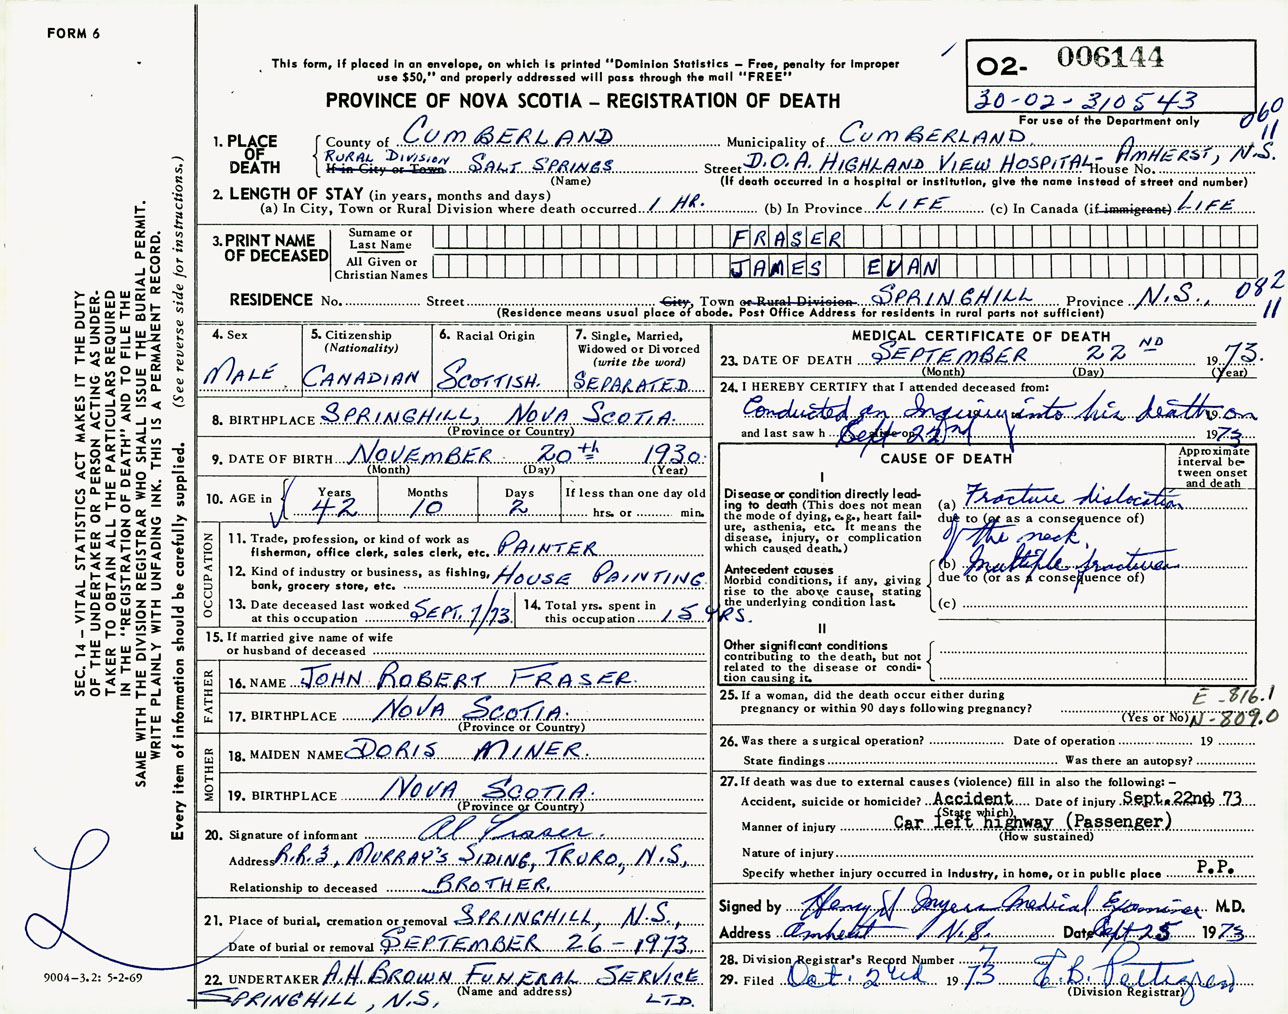 FORM 6
This form, if placed in an envelope, on which is printed "Dominion Statistics – Free, penalty for improper
use $50," and properly addressed will pass through the mail "FREE"
PROVINCE OF NOVA SCOTIA – REGISTRATION OF DEATH
O2- 006144
30-02-310543
For use of the Department only
060
11
1. PLACE OF DEATH
County of CUMBERLAND Municipality of CUMBERLAND
RURAL DIVISION
If in City or Town SALT SPRINGS Street D.O.A. HIGHLAND VIEW HOSPITAL- AMHERST, N.S. House No.
(Name) (If death occurred in a hospital or institution, give the name instead of street and number)
2. LENGTH OF STAY (in years, months and days)
(a) In City, Town or Rural Division where death occurred 1 HR. (b) In Province LIFE (c) In Canada (if immigrant) LIFE
3. PRINT NAME OF DECEASED
Surname or Last Name FRASER
All Given or Christian Names JAMES EVAN
082
11
RESIDENCE No. Street City, Town or Rural Division SPRINGHILL Province N.S.,
(Residence means usual place of abode. Post Office Address for residents in rural parts not sufficient)
4. Sex
MALE
5. Citizenship
(Nationality)
CANADIAN
6. Racial Origin
SCOTTISH.
7. Single, Married,
Widowed or Divorced
(write the word)
SEPARATED
8. BIRTHPLACE SPRINGHILL, NOVA SCOTIA.
(Province or Country)
9. DATE OF BIRTH NOVEMBER 20th 1930
(Month) (Day) (Year)
10. AGE in
Years Months Days If less than one day old
42 10 2 hrs. or min.
OCCUPATION
11. Trade, profession, or kind of work as
fisherman, office clerk, sales clerk, etc. PAINTER
12. Kind of industry or business, as fishing,
bank, grocery store, etc. HOUSE PAINTING
13. Date deceased last worked
at this occupation SEPT. 7/73.
14. Total yrs. spent in
this occupation 15 YRS.
15. If married give name of wife
or husband of deceased
FATHER
16. NAME JOHN ROBERT FRASER.
17. BIRTHPLACE NOVA SCOTIA.
(Province or Country)
MOTHER
18. MAIDEN NAME DORIS MINER.
19. BIRTHPLACE NOVA SCOTIA.
(Province or Country)
20. Signature of informant Al Fraser.
Address R.R.3, MURRAY'S SIDING, TRURO, N.S.,
Relationship to deceased BROTHER.
21. Place of burial, cremation or removal SPRINGHILL, N.S.,
Date of burial or removal SEPTEMBER 26-1973
22. UNDERTAKER A.H. BROWN FUNERAL SERVICE
(Name and address)
SPRINGHILL, N.S. LTD.
MEDICAL CERTIFICATE OF DEATH
23. DATE OF DEATH SEPTEMBER 22ND 1973.
(Month) (Day) (Year)
24. I HEREBY CERTIFY that I attended deceased from:
Conducted an Inquiry into his death on 19
and last saw h alive on Sept 22nd 1973
CAUSE OF DEATH
Approximate interval between onset and death
I
Disease or condition directly leading to death (This does not mean the mode of dying, e.g., heart failure, asthenia, etc. It means the disease, injury, or complication which caused death.)
(a) Fracture dislocation
due to (or as a consequence of)
of the neck.
Antecedent causes
Morbid conditions, if any, giving rise to the above cause, stating the underlying condition last.
(b) Multiple fractures
due to (or as a consequence of)
(c)
II
Other significant conditions
contributing to the death, but not related to the disease or condition causing it.
25. If a woman, did the death occur either during
pregnancy or within 90 days following pregnancy?
(Yes or No)
E-816.1
N-809.0
26. Was there a surgical operation? Date of operation 19
State findings Was there an autopsy?
27. If death was due to external causes (violence) fill in also the following: –
Accident, suicide or homicide? Accident Date of injury Sept. 22nd, 19 73
(State which)
Manner of injury Car left highway (Passenger)
(How sustained)
Nature of injury
Specify whether injury occurred in industry, in home, or in public place P.P.
Signed by Henry J Myers Medical Examiner M.D.
Address Amherst N.S. Date Sept 25 1973
28. Division Registrar's Record Number 7
29. Filed Oct. 2nd 1973 E.B. Pettigrew
(Division Registrar)
SEC. 14 – VITAL STATISTICS ACT MAKES IT THE DUTY
OF THE UNDERTAKER OR PERSON ACTING AS UNDER-
TAKER TO OBTAIN ALL THE PARTICULARS REQUIRED
IN THE "REGISTRATION OF DEATH" AND TO FILE THE
SAME WITH THE DIVISION REGISTRAR WHO SHALL ISSUE THE BURIAL PERMIT.
WRITE PLAINLY WITH UNFADING INK. THIS IS A PERMANENT RECORD.
Every item of information should be carefully supplied. (See reverse side for instructions.)
9004–3.2: 5-2-69